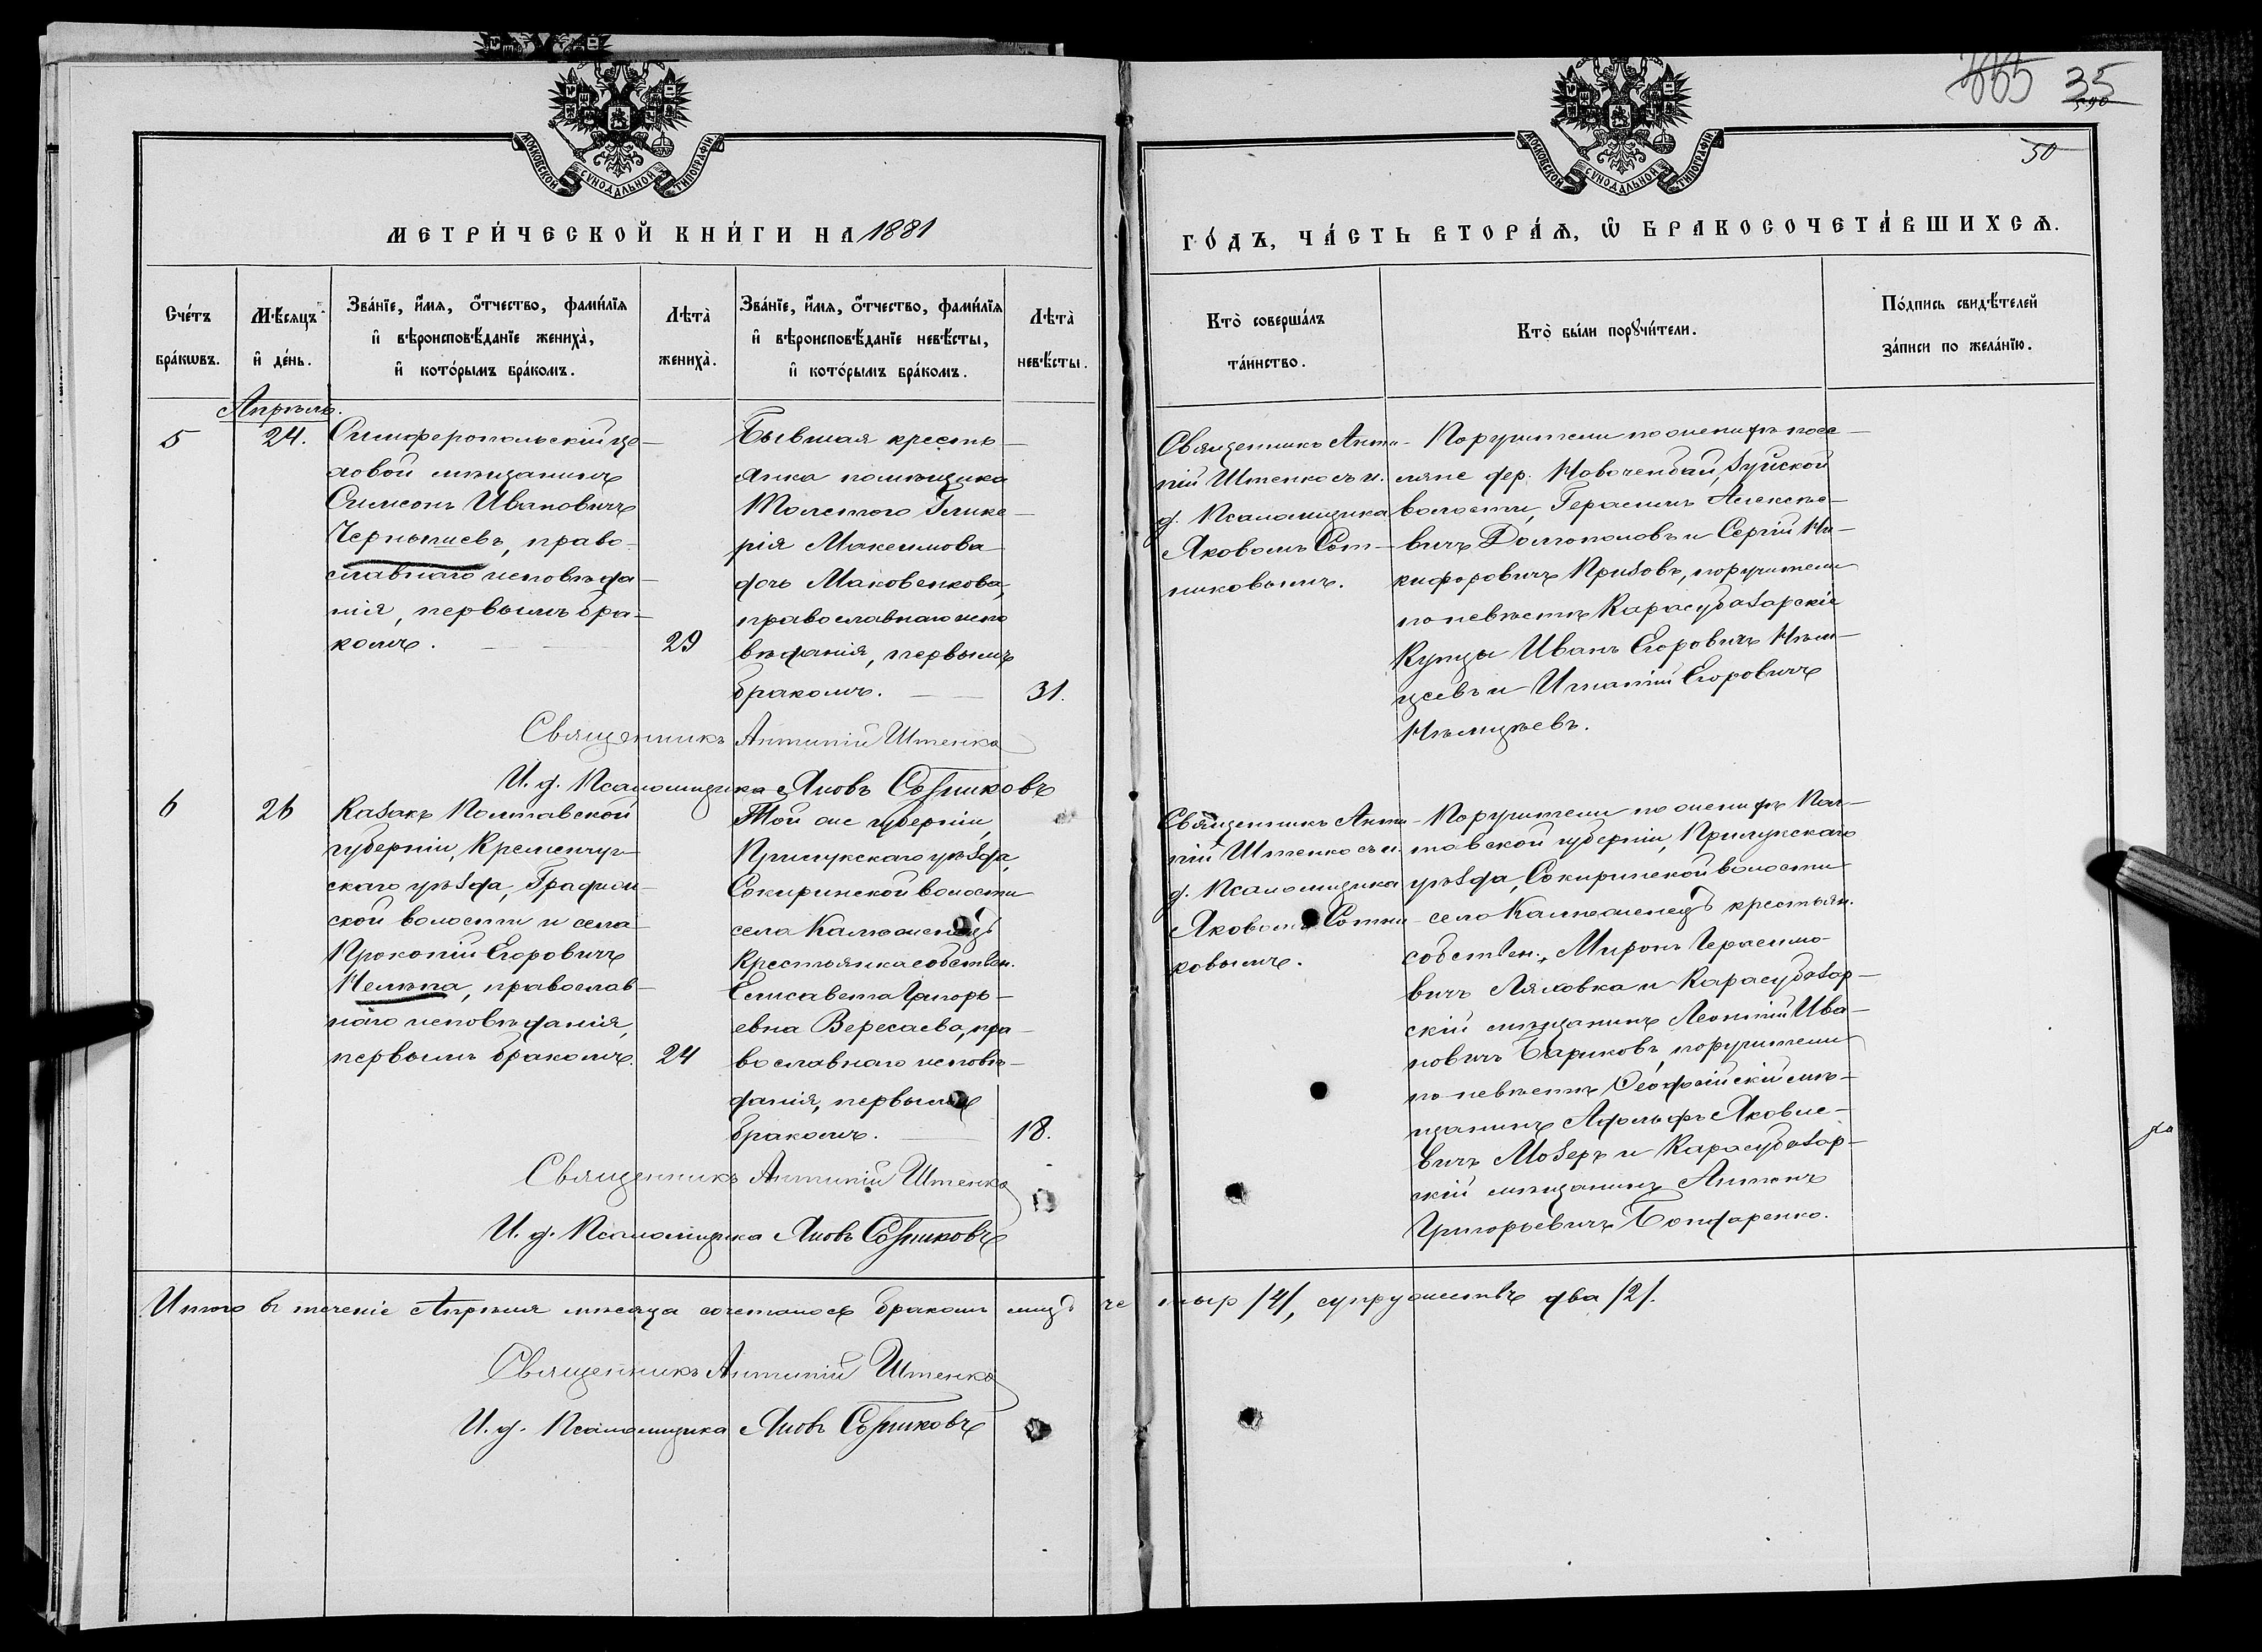 665 35
590
50
МОСКОВСКОЙ СѴНОДАЛЬНОЙ ТИПОГРАФІИ
МОСКОВСКОЙ СѴНОДАЛЬНОЙ ТИПОГРАФІИ
МЕТРИ́ЧЕСКОЙ КНИ́ГИ НА 1881
ГО́ДЪ, ЧА́СТЬ ВТОРА́Ѧ, Ѡ҆ БРАКОСОЧЕТА́ВШИХСѦ.
Сче́тъ
бра́кѡвъ.
Мѣ́сяцъ
и҆ де́нь.
Зва́нїе, и҆́мя, ѻ҆́тчество, фами́лїя
и҆ вѣроисповѣ́данїе жениха̀,
и҆ кото́рымъ бра́комъ.
Лѣта̀
жениха̀.
Зва́нїе, и҆́мя, ѻ҆́тчество, фами́лїя
и҆ вѣроисповѣ́данїе невѣ́сты,
и҆ кото́рымъ бра́комъ.
Лѣта̀
невѣ́сты.
Кто̀ соверша́лъ
та́инство.
Кто̀ бы́ли порꙋчи́тели.
По́дпись свидѣ́телей
за́писи по жела́нїю.
Апрѣль.
5
24.
Симферопольскій це-
ховой мѣщанинъ
Симеонъ Ивановичъ
Чернышевъ, право-
славнаго исповѣда-
нія, первымъ бра-
комъ.
29
Бывшая кресть-
янка помѣщика
Толстого Глике-
рія Максимова
дочь Маковенкова,
православнаго испо
вѣданія, первымъ
бракомъ.
31.
Священникъ Антипій Штенко
И. д. Псаломщика Яковъ Сотниковъ
Священникъ Анти-
пій Штенко съ и.
д. Псаломщика
Яковомъ Сот-
никовымъ.
Поручители по женихѣ посе-
ляне дер. Новочембай, Зуйской
волости, Герасимъ Алексѣе-
вичъ Долгополовъ и Сергій Ни-
кифоровичъ Призовъ, поручители
по невѣстѣ Карасубазарскіе
Купцы Иванъ Егоровичъ Нѣм-
цевъ и Игнатій Егоровичъ
Нѣмцевъ.
6
26
Казакъ Полтавской
губерніи, Кременчуг-
скаго уѣзда, Градиж-
ской волости и села
Прокопій Егоровичъ
Нелѣпа, православ-
наго исповѣданія,
первымъ бракомъ.
24
Той же губерніи,
Прилукскаго уѣзда,
Сокиринской волости
села Калюженецъ
Крестьянка собствен.
Елисавета Григорь-
евна Вересаева, пра-
вославнаго исповѣ-
данія, первымъ
бракомъ.
18.
Священникъ Антипій Штенко
И. д. Псаломщика Яковъ Сотниковъ
Священникъ Анти-
пій Штенко съ и.
д. Псаломщика
Яковомъ Сотни
ковымъ.
Поручители по женихѣ Пол-
тавской губерніи, Прилукскаго
уѣзда, Сокиринской волости
село Калюженецъ крестьян.
собствен., Миронъ Герасимо-
вичъ Ляховка и Карасубазар-
скій мѣщанинъ Леонтій Ива-
новичъ Бариковъ, поручители
по невѣстѣ, Ѳеодосійскій мѣ-
щанинъ Адольфъ Яковле-
вичъ Мозеръ и Карасубазар-
скій мѣщанинъ Антонъ
Григорьевичъ Бондаренко.
Итого въ теченіе Апрѣля мѣсяца сочеталось бракомъ лицъ че тыр /4/, супружествъ два /2/.
Священникъ Антипій Штенко
И. д. Псаломщика Яковъ Сотниковъ